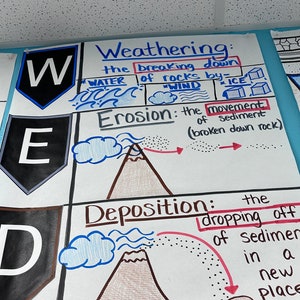 W
Weathering:
the breaking down
of rocks by:
WATER WIND ICE
E
Erosion: the movement
of sediment
(broken down rock)
D
Deposition: the
dropping off
of sediment
in a
new
place